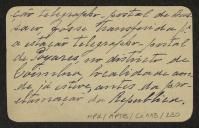 ção telegrapho-postal de
sam, fosse transferida p.ª
a estação telegrapho-postal
de Poyares, no districto de
Coimbra, localidade aon-
de já esteve antes da pro-
clamação da Republica.